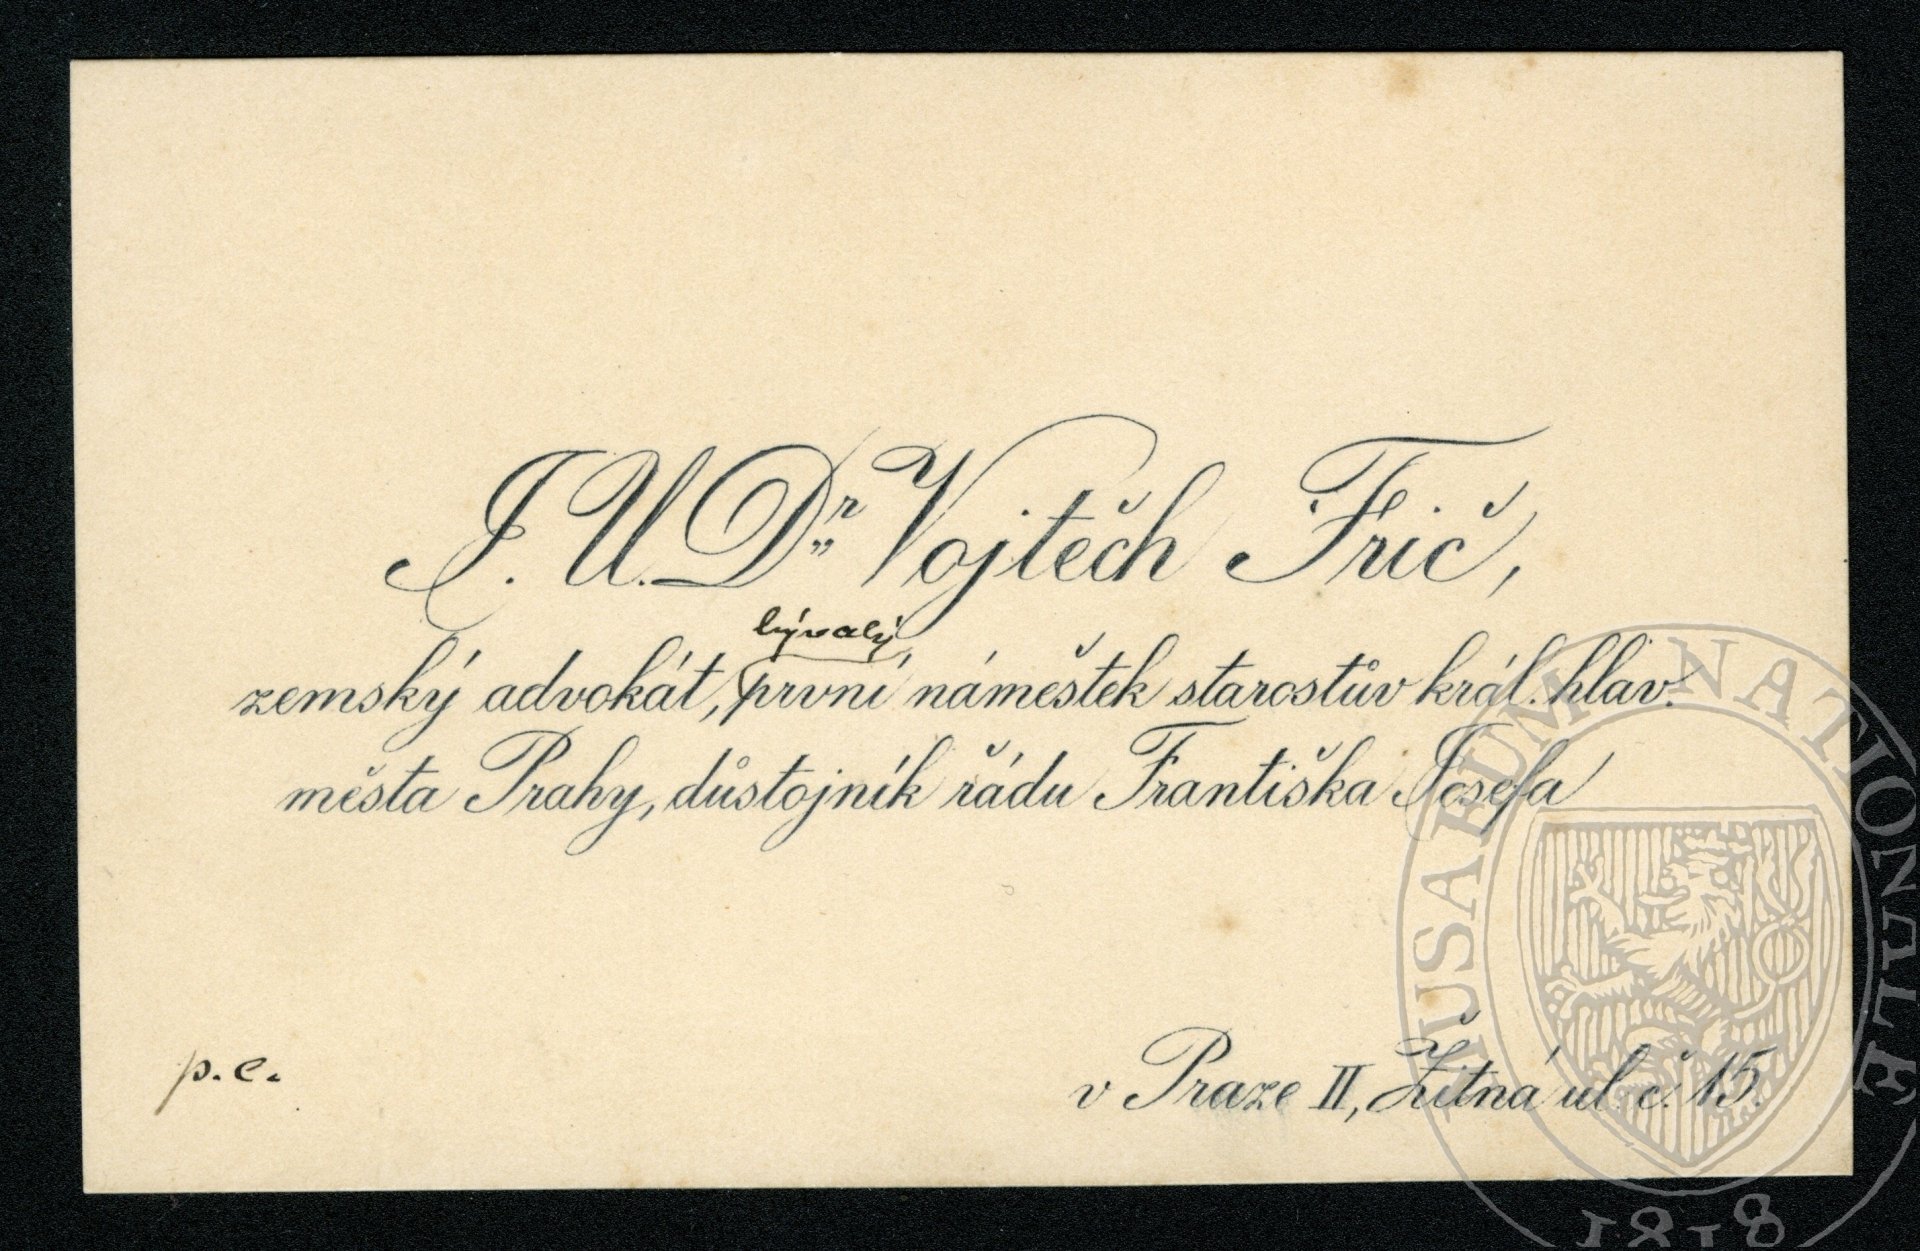 J. U. Dr. Vojtěch Frič,
bývalý
zemský advokát, první náměstek starostův král. hlav.
města Prahy, důstojník řádu Františka Josefa
p. c.
v Praze II, Žitná ul. č. 15.
MUSAEUM NATIONALE
1818